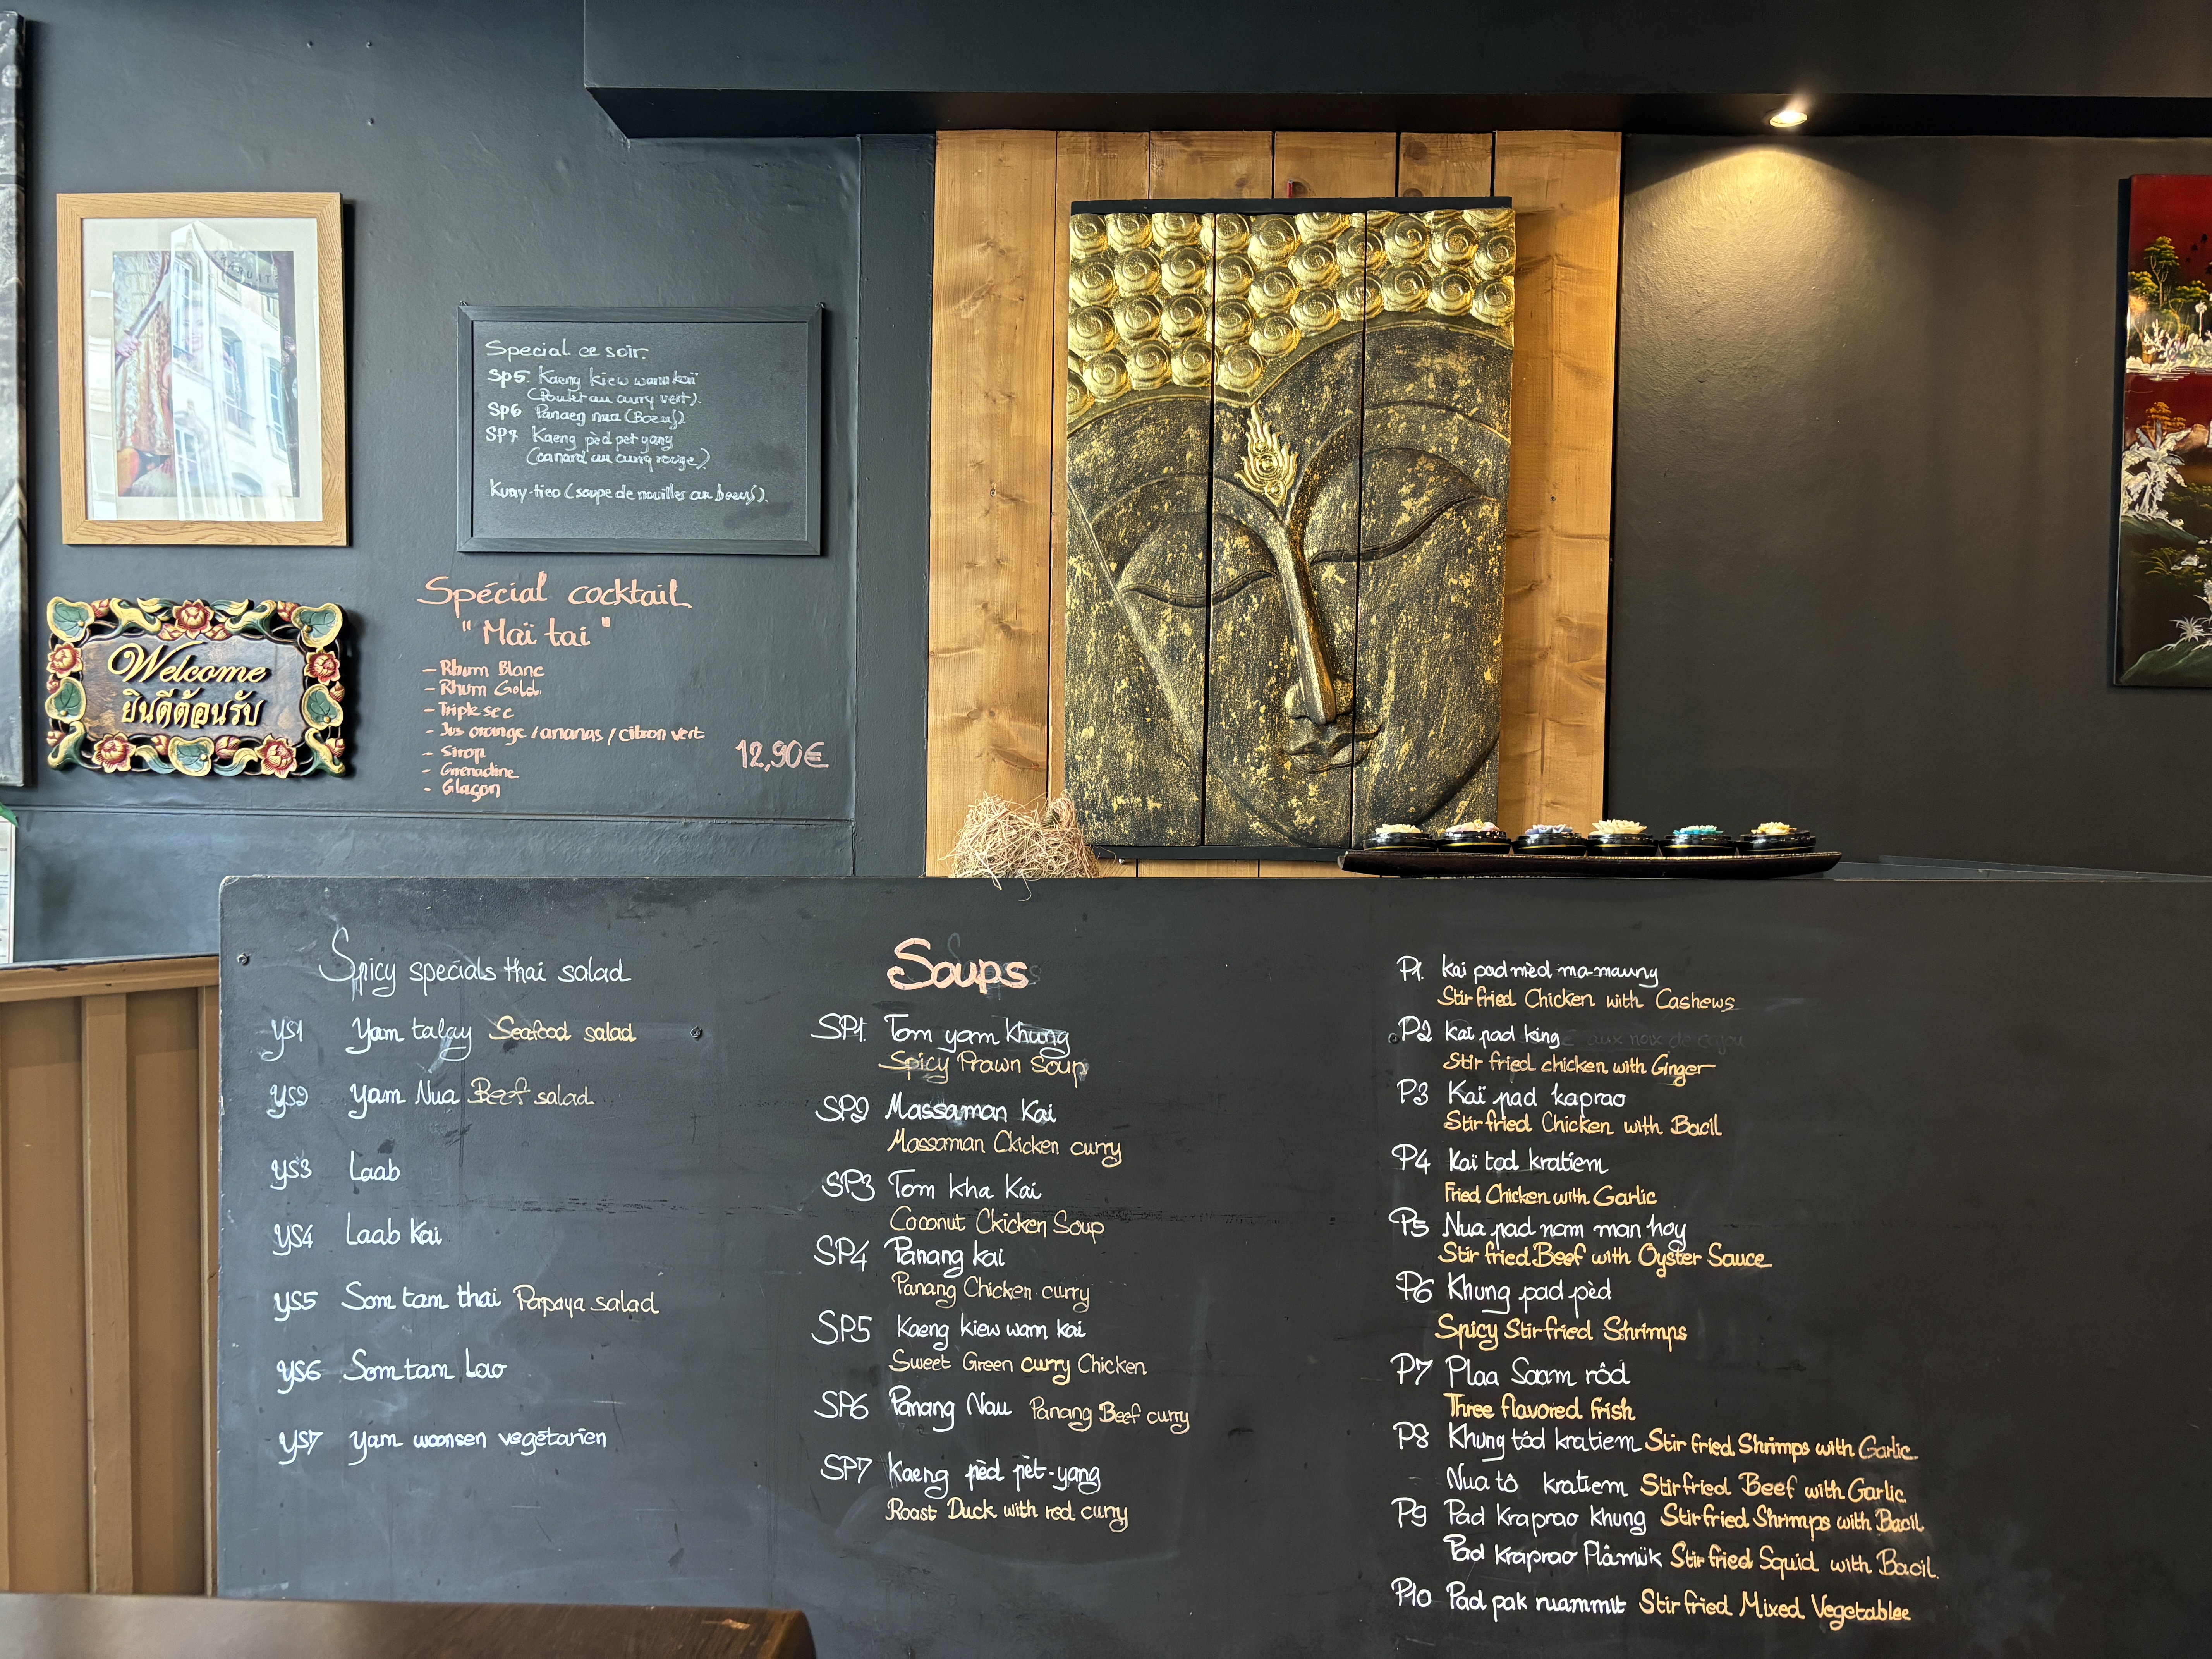 Special ce soir.
Sp5. Kaeng kiew wam kaï
(Poulet au curry vert).
Sp6 Panaeng nua (Boeuf)
SP7 Kaeng pèd pet yang
(canard au curry rouge)
Kuay-tieo (soupe de nouilles au boeuf).
Spécial cocktail
"Maï tai"
- Rhum Blanc
- Rhum Gold.
- Triple sec
- Jus orange / ananas / citron vert
- Sirop
- Grenadine
- Glaçon
12,90€
Welcome
ยินดีต้อนรับ
Spicy specials thai salad
YS1 Yam talay Seafood salad
YS2 Yam Nua Beef salad
YS3 Laab
YS4 Laab Kai
YS5 Som tam thai Papaya salad
YS6 Som tam Lao
YS7 Yam woonsen végétarien
Soups
SP1. Tom yam Khung
Spicy Prawn Soup
SP2 Massaman Kai
Massaman Ckicken curry
SP3 Tom kha Kai
Coconut Ckicken Soup
SP4 Panang kai
Panang Chicken curry
SP5 Kaeng kiew wam kai
Sweet Green curry Chicken
SP6 Panang Nau Panang Beef curry
SP7 Kaeng pèd pèt-yang
Roast Duck with red curry
P1. Kai pad mèd ma-maung
Stir fried Chicken with Cashews
P2 Kai pad king aux noix de cajou
Stir fried chicken with Ginger
P3 Kaï pad kaprao
Stir fried Chicken with Bacil
P4 Kaï tod kratiem
Fried Chicken with Garlic
P5 Nua pad nam man hoy
Stir fried Beef with Oyster Sauce
P6 Khung pad pèd
Spicy Stir fried Shrimps
P7 Plaa Saam rôd
Three flavored frish
P8 Khung tôd kratiem Stir fried Shrimps with Garlic
Nua tô kratiem Stir fried Beef with Garlic
P9 Pad kraprao khung Stir fried Shrimps with Bacil
Pad kraprao Plâmük Stir fried Squid with Bacil.
P10 Pad pak ruammit Stir fried Mixed Vegetablee